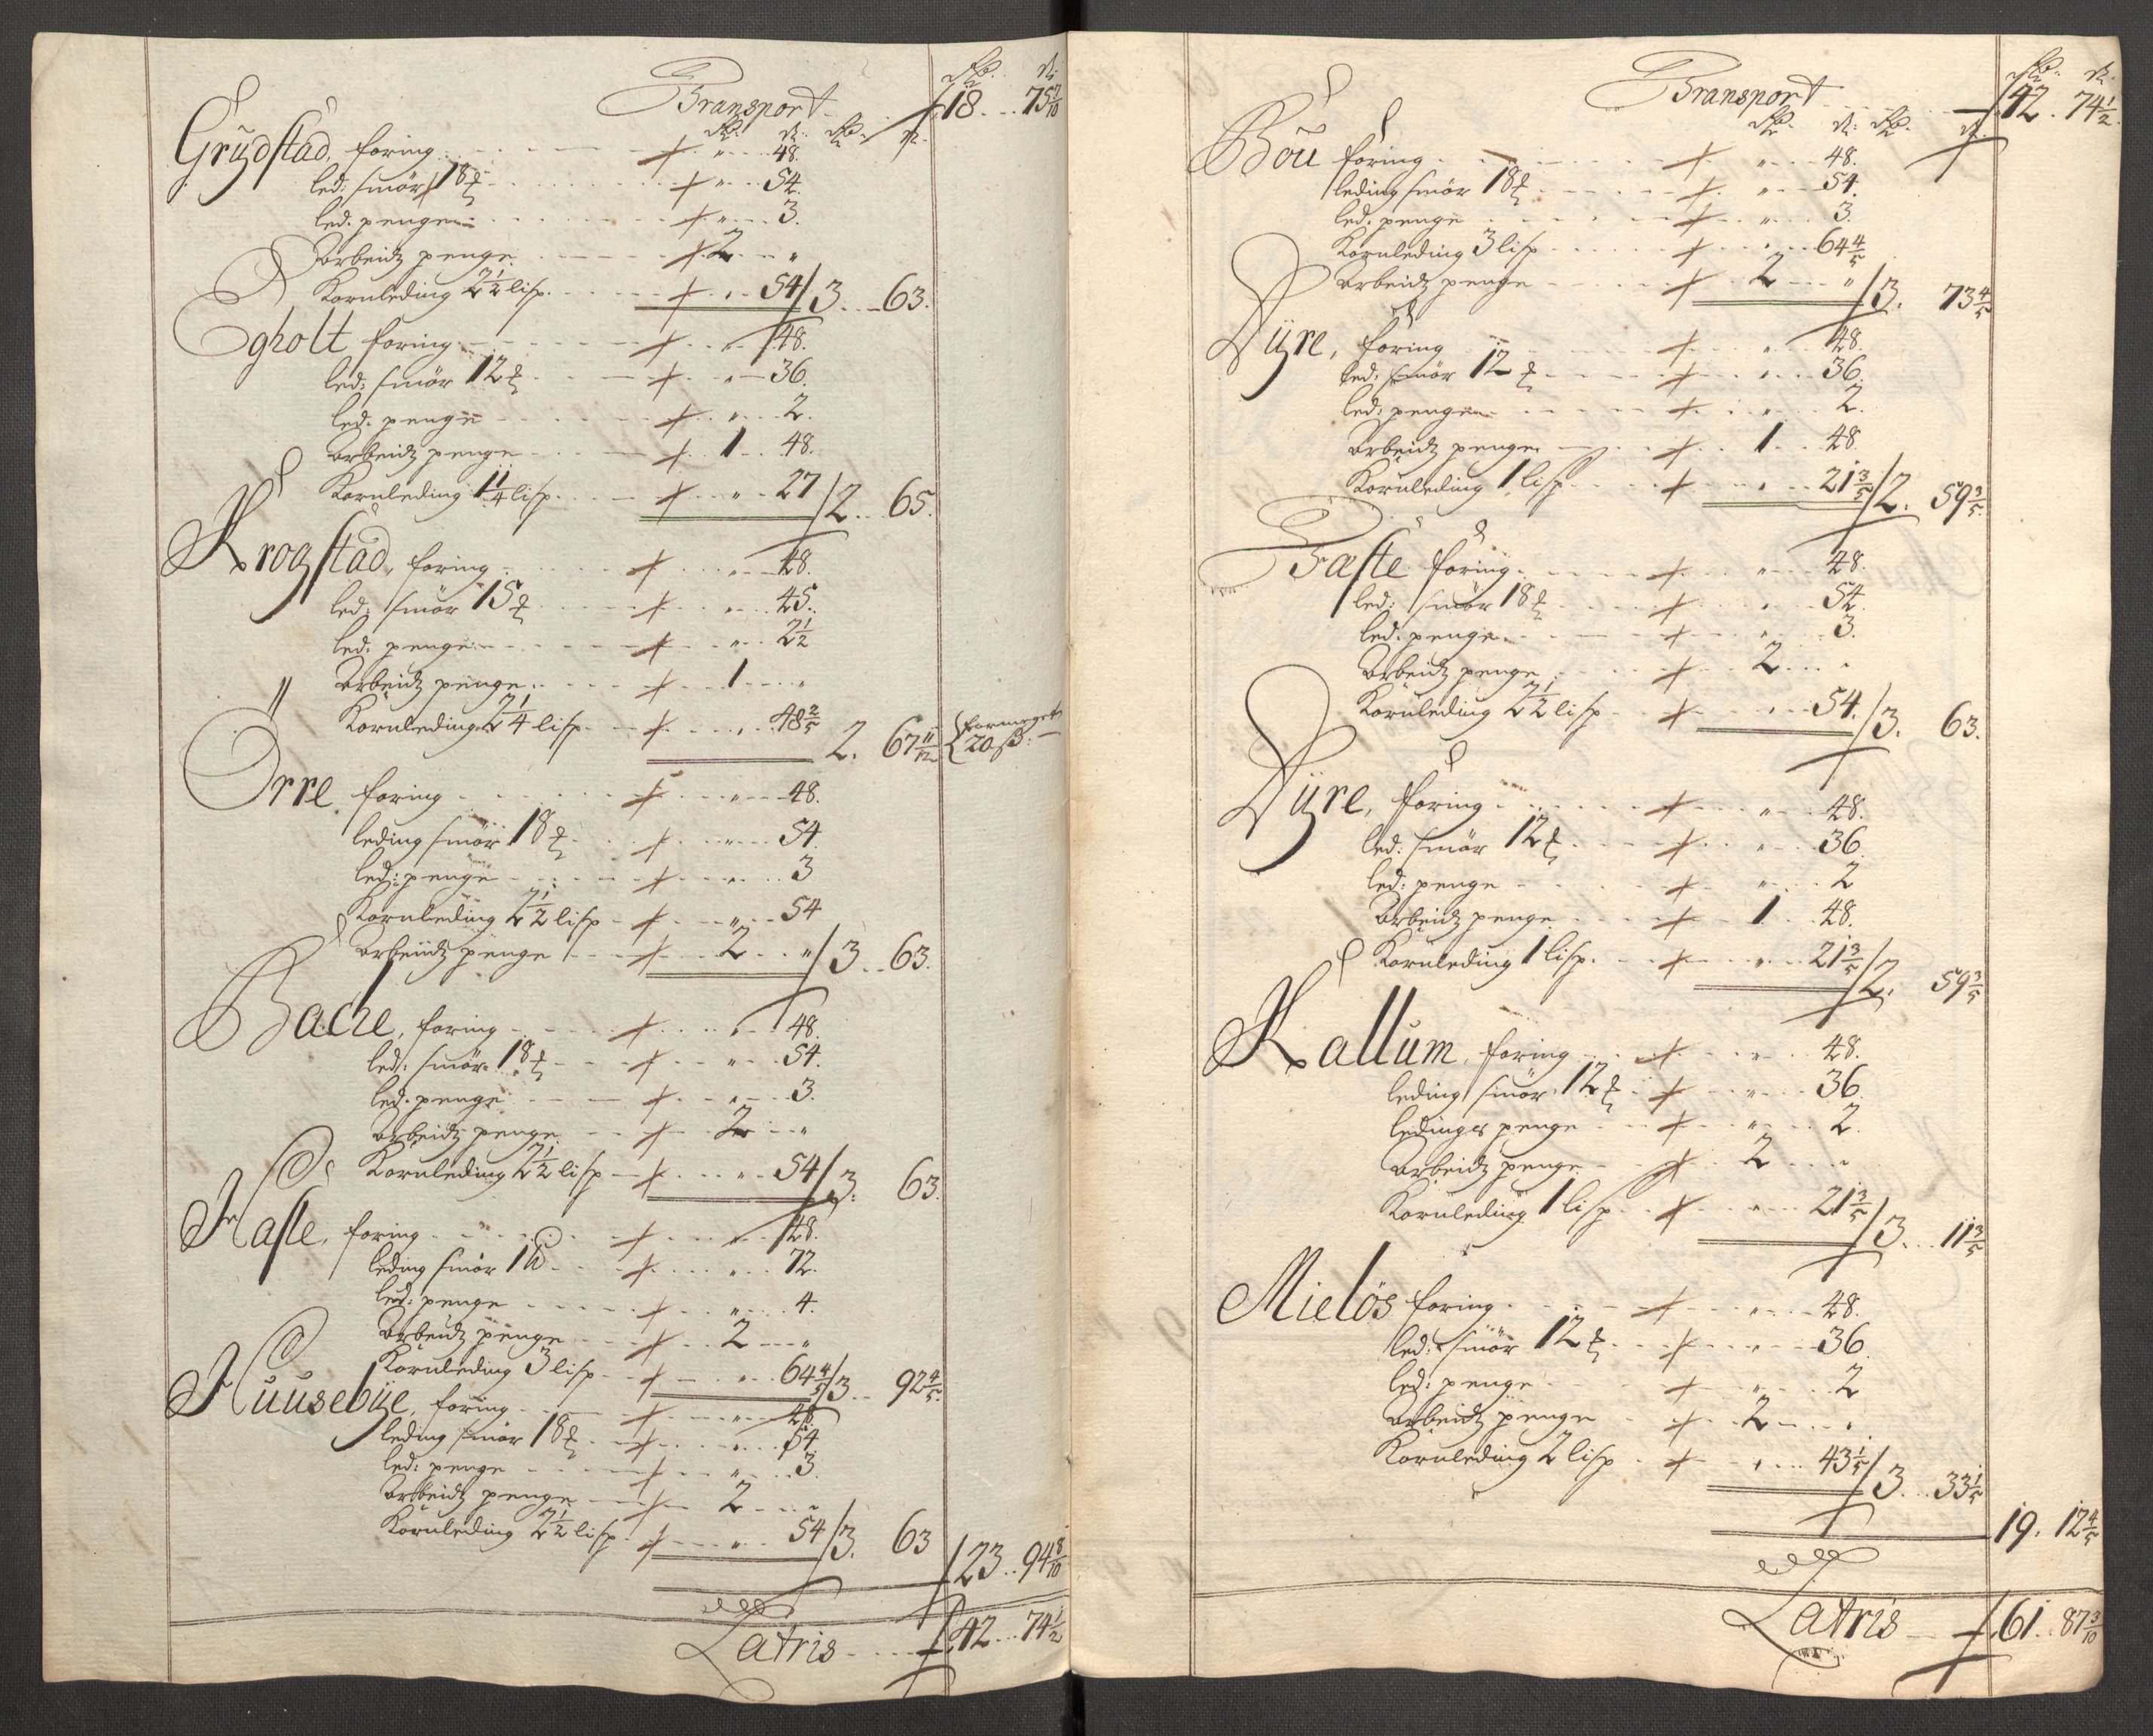 Transport . . 18 . . 75 7/10
Grydstad, foring . . 48.
led: smör 18 . . 54.
led: penge . . 3.
Arbeidz penge . . 2 . . "
Kornleding 2 1/2 lisp. . . 54 / 3 . . 63.
Egholt foring . . 48.
led: smör 12 . . 36.
led: penge . . 2.
Arbeidz penge . . 1 . . 48.
Kornleding 1 1/4 lisp. . . 27 / 2 . . 65.
Krogstad, foring . . 48.
led: smör 15 . . 45.
led: penge . . 2 1/2
Arbeidz penge . . 1 . . "
Kornleding 2 1/4 lisp . . 48 2/5
2. 67 11/12 20 ß:
Örre foring . . 48.
leding smör 18 . . 54.
led: penge . . 3
Kornleding 2 1/2 lisp . . 54
Arbeidz penge . . 2 . . " / 3 . . 63.
Bache, foring . . 48.
led: smör 18 . . 54.
led: penge . . 3.
Arbeidz penge . . 2 . . "
Kornleding 2 1/2 lisp . . 54 / 3. 63.
Hasle, foring . . 48.
leding smör 1 . . 72.
led: penge . . 4.
Arbeidz penge . . 2 . . "
Kornleding 3 lisp . . 64 4/5 / 3 . . 92 4/5.
Huusebye, foring . . 48.
leding smör 18 . . 54.
led: penge . . 3.
Arbeidz penge . . 2 . . "
Kornleding 2 1/2 lisp . . 54 / 3. 63
23 . . 94 8/10
Latris . . 42 . . 74 1/2
Transport . . 42 . 74 1/2
Böu foring . . 48.
leding smör 18 . . 54.
led: penge . . 3.
Kornleding 3 lisp . . 64 4/5
Arbeidz penge . . 2 . . " / 3. 73 4/5
Dyre, foring . . 48.
led: smör 12 . . 36.
led: penge . . 2.
Arbeidz penge . . 1 . . 48.
Kornleding 1 lisp . . 21 3/5 / 2. 59 3/5.
Taste foring . . 48.
led: smör 18 . . 54.
led: penge . . 3.
Arbeidz penge . . 2 . . "
Kornleding 2 1/2 lisp . . 54. / 3. 63.
Dyre, foring . . 48.
led: smör 12 . . 36.
led: penge . . 2
Arbeidz penge . . 1 . . 48.
Kornleding 1 lisp. . . 21 3/5 / 2. 59 3/5
Kallum, foring . . 48.
leding smör 12 . . 36.
ledings penge . . 2.
Arbeidz penge . . 2 . . "
Kornleding 1 lisp . . 21 3/5 / 3 . . 11 3/5
Mielös foring . . 48.
led: smör 12 . . 36.
led: penge . . 2
Arbeidz penge . . 2 . . "
Kornleding 2 lisp . . 43 1/5 / 3 . . 33 1/5
19. 12 4/5
Latris . . 61 . . 87 3/10